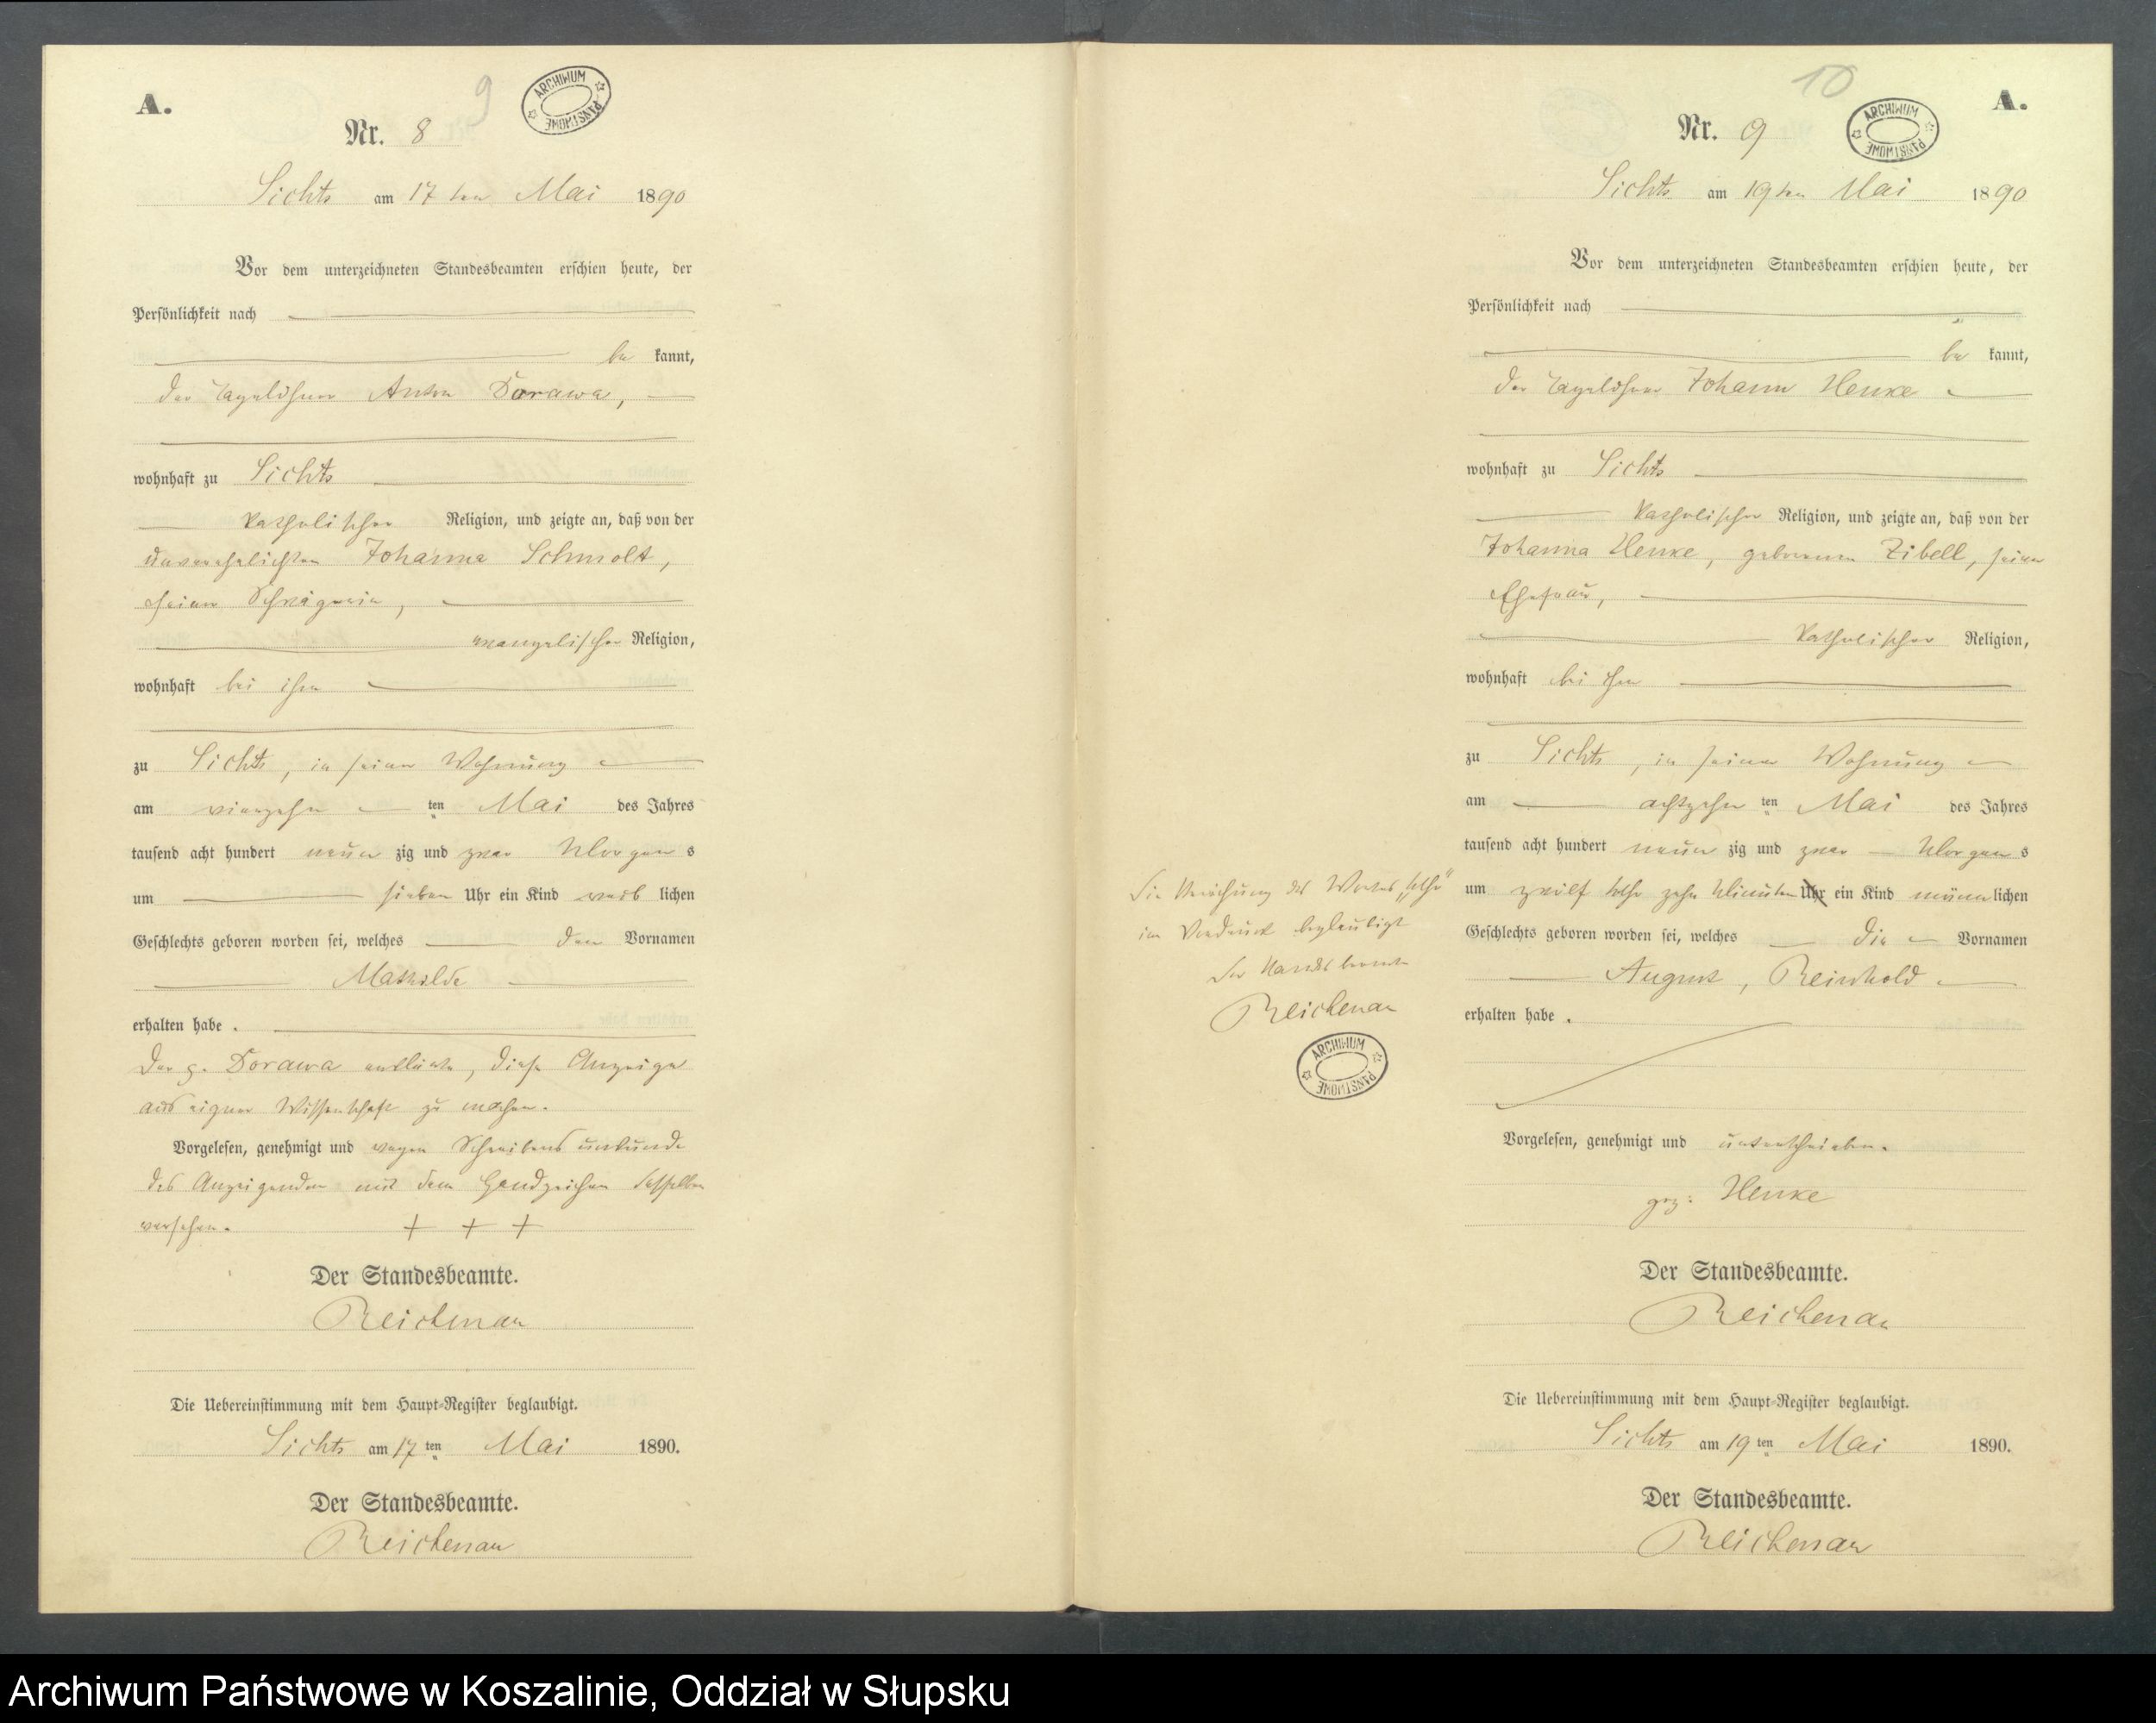 A.
9
ARCHIWUM PAŃSTWOWE
Nr. 8
Lichts am 17ten Mai 1890
Vor dem unterzeichneten Standesbeamten erschien heute, der
Persönlichkeit nach
be kannt,
der Tagelöhner Anton Dorawa,
wohnhaft zu Lichts
katholischer Religion, und zeigte an, daß von der
unverehelichten Johanna Schmolt,
seiner Schwägerin,
evangelischer Religion,
wohnhaft bei ihm
zu Lichts, in seiner Wohnung
am vierzehn ten Mai des Jahres
tausend acht hundert neun zig und zwar Morgen s
um sieben Uhr ein Kind weib lichen
Geschlechts geboren worden sei, welches den Vornamen
Mathilde
erhalten habe.
Der p. Dorawa erklärte, diese Anzeige
aus eigner Wissenschaft zu machen.
Vorgelesen, genehmigt und wegen Schreibensunkunde
des Anzeigenden mit dem Handzeichen desselben
versehen. + + +
Der Standesbeamte.
Reichenau
Die Uebereinstimmung mit dem Haupt-Register beglaubigt.
Lichts am 17 ten Mai 1890.
Der Standesbeamte.
Reichenau
10
A.
ARCHIWUM PAŃSTWOWE
Nr. 9
Lichts am 19ten Mai 1890
Vor dem unterzeichneten Standesbeamten erschien heute, der
Persönlichkeit nach
be kannt,
der Tagelöhner Johann Henke
wohnhaft zu Lichts
katholischer Religion, und zeigte an, daß von der
Johanna Henke, geborenen Zibell, seiner
Ehefrau,
katholischer Religion,
wohnhaft bei ihm
zu Lichts, in seiner Wohnung
am achtzehn ten Mai des Jahres
tausend acht hundert neun zig und zwar Morgen s
um zwölf Uhr zehn Minuten Uhr ein Kind männ lichen
Geschlechts geboren worden sei, welches die Vornamen
August, Reinhold
erhalten habe.
Vorgelesen, genehmigt und unterschrieben.
gez: Henke
Der Standesbeamte.
Reichenau
Die Uebereinstimmung mit dem Haupt-Register beglaubigt.
Lichts am 19 ten Mai 1890.
Der Standesbeamte.
Reichenau
Die Streichung des Wortes „Uhr“
im Vordruck beglaubigt
Der Standesbeamte
Reichenau
ARCHIWUM PAŃSTWOWE
Archiwum Państwowe w Koszalinie, Oddział w Słupsku